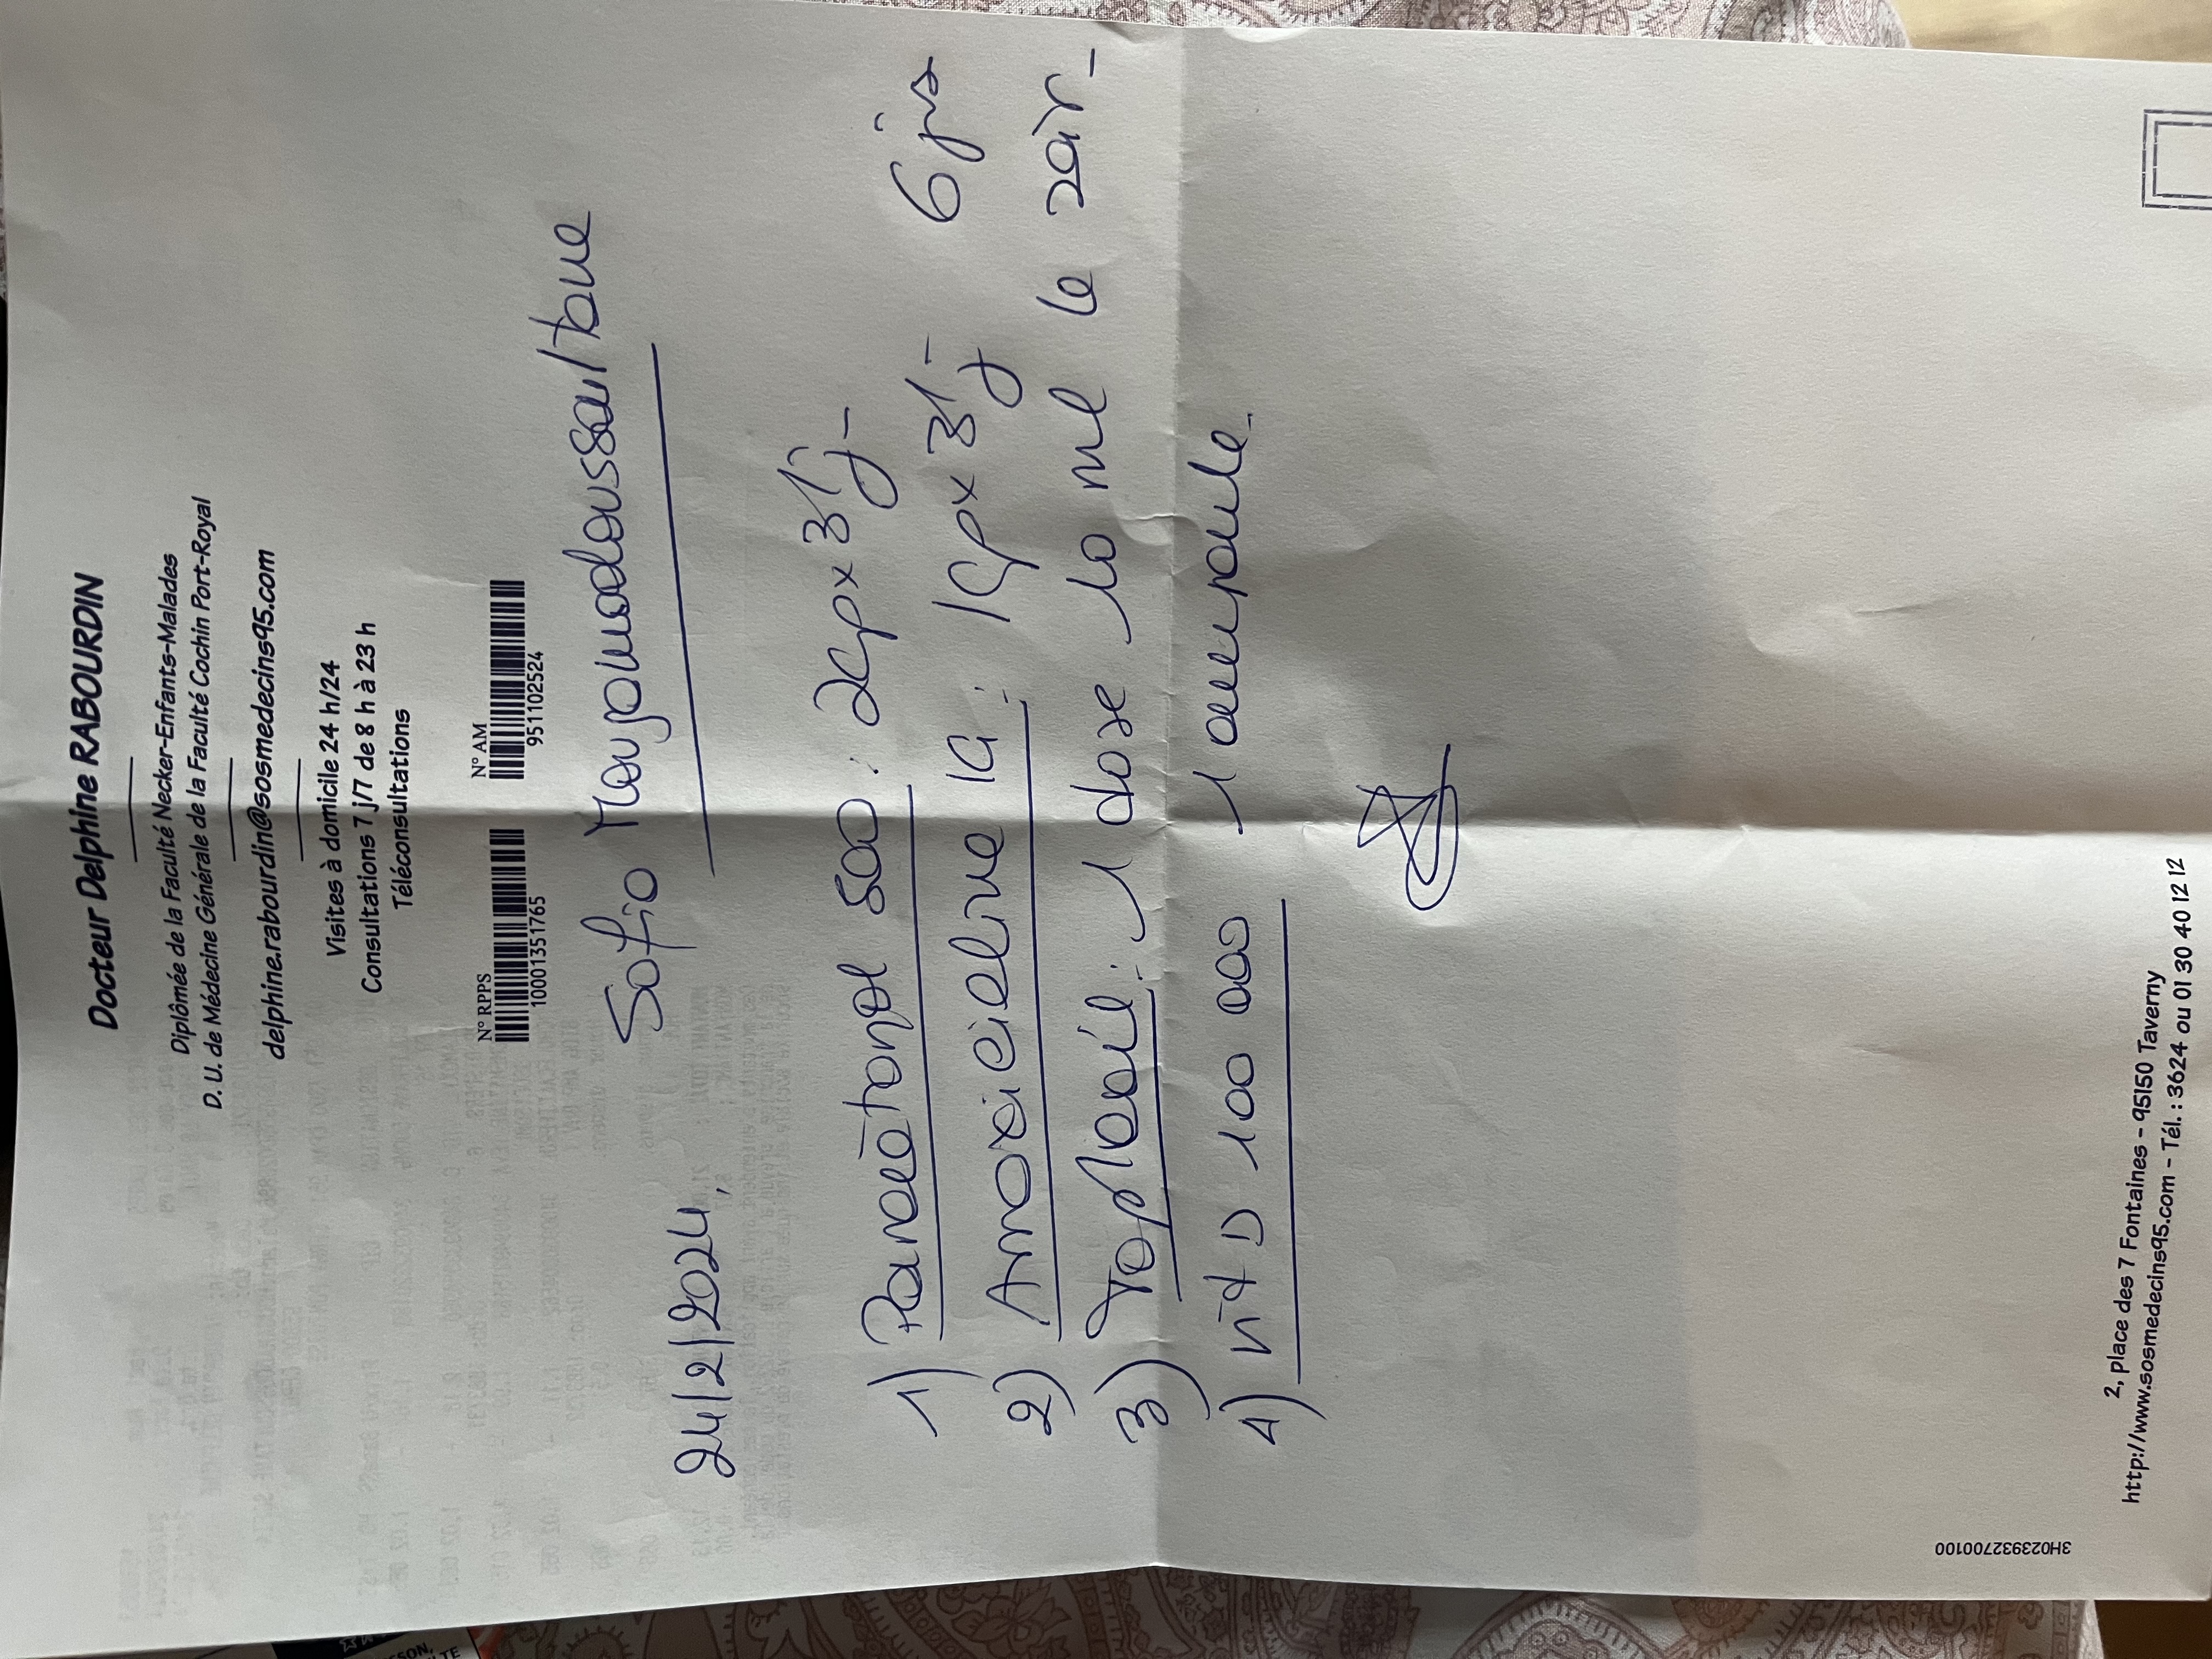 Docteur Delphine RABOURDIN
Diplômée de la Faculté Necker-Enfants-Malades
D. U. de Médecine Générale de la Faculté Cochin Port-Royal
delphine.rabourdin@sosmedecins95.com
Visites à domicile 24 h/24
Consultations 7 j/7 de 8 h à 23 h
Téléconsultations
N° RPPS
10001351765
N° AM
951102524
Sofia
24/2/2024,
1) Paracétamol 500 : 2cp x 3/j
2) Amoxicilline 1G : 1cp x 3/j 6 jrs
3) Toplexil : 1 dose 10 ml le soir
4) Vit D 100 000 1 ampoule.
3H023932700100
2, place des 7 Fontaines – 95150 Taverny
http://www.sosmedecins95.com – Tél. : 3624 ou 01 30 40 12 12